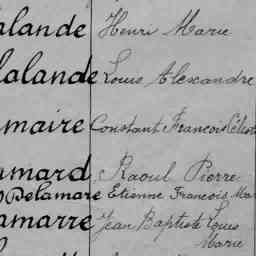 alande Henri Marie
lalande Louis Alexandre
maire Constant Francois Célest
mard Raoul Pierre
Delamare Etienne Francois Mar
amarre Jean Baptiste Louis
Marie